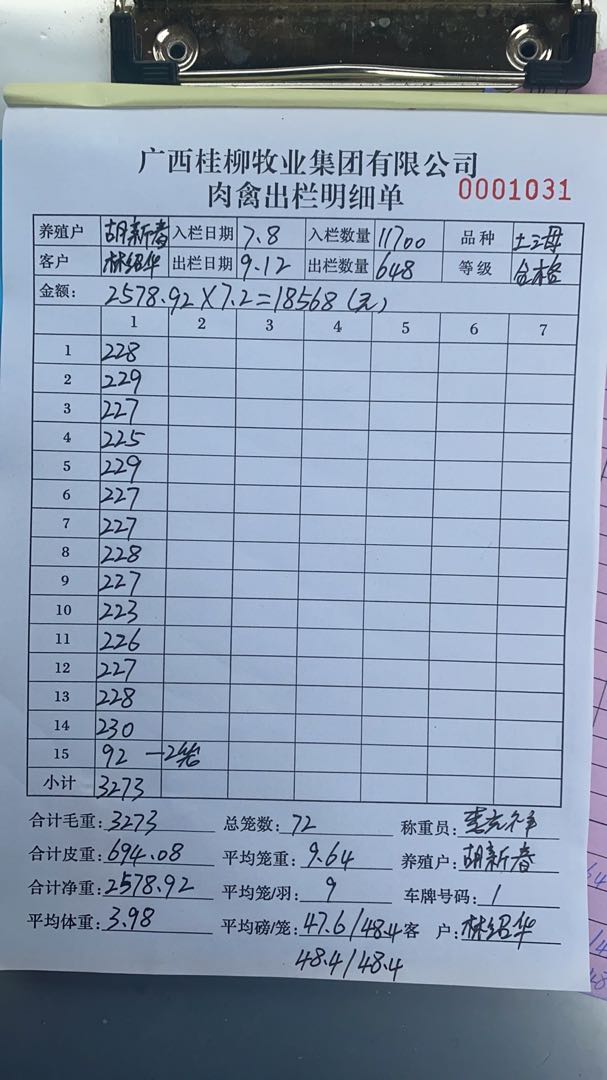 广西桂柳牧业集团有限公司
肉禽出栏明细单 0001031
养殖户 胡新春 入栏日期 7.8 入栏数量 11700 品种 土二母
客户 林绍华 出栏日期 9.12 出栏数量 648 等级 合格
金额: 2578.92×7.2=18568(元)
1 2 3 4 5 6 7
1 228
2 229
3 227
4 225
5 229
6 227
7 227
8 228
9 227
10 223
11 226
12 227
13 228
14 230
15 92 —2笼
小计 3273
合计毛重: 3273 总笼数: 72 称重员:
合计皮重: 694.08 平均笼重: 9.64 养殖户: 胡新春
合计净重: 2578.92 平均笼/羽: 9 车牌号码: 1
平均体重: 3.98 平均磅/笼: 47.6/48.4 客 户: 林绍华
48.4/48.4